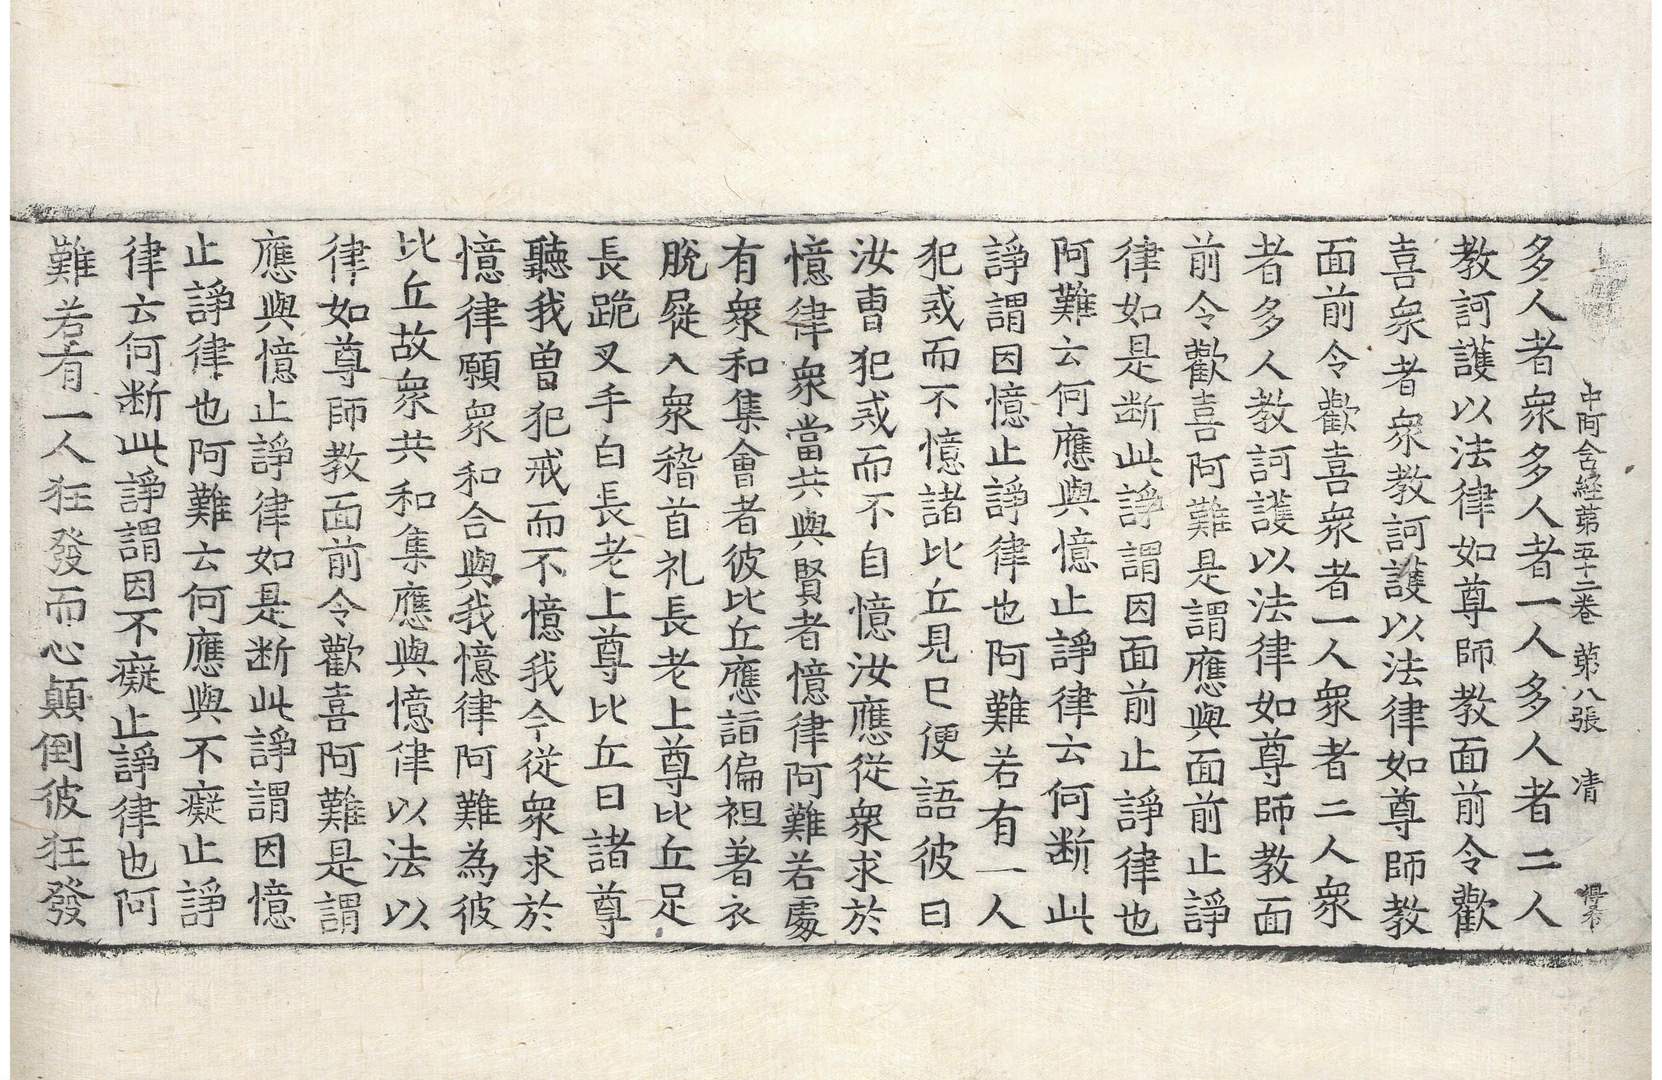 中阿含経苐五十二卷 苐八張 清
多人者衆多人者一人多人者二人
教訶護以法律如尊師教面前令歡
喜衆者衆教訶護以法律如尊師教
面前令歡喜衆者一人衆者二人衆
者多人教訶護以法律如尊師教面
前令歡喜阿難是謂應與面前止諍
律如是断此諍謂因面前止諍律也
阿難云何應與憶止諍律云何断此
諍謂因憶止諍律也阿難若有一人
犯戒而不憶諸比丘見已便語彼曰
汝曹犯戒而不自憶汝應從衆求於
憶律衆當共與賢者憶律阿難若處
有衆和集會者彼比丘應詣偏袒著衣
脫屣入衆稽首礼長老上尊比丘足
長跪叉手白長老上尊比丘曰諸尊
聽我曽犯戒而不憶我今從衆求於
憶律願衆和合與我憶律阿難為彼
比丘故衆共和集應與憶律以法以
律如尊師教面前令歡喜阿難是謂
應與憶止諍律如是断此諍謂因憶
止諍律也阿難云何應與不癡止諍
律云何断此諍謂因不癡止諍律也阿
難若有一人狂發而心顛倒彼狂發